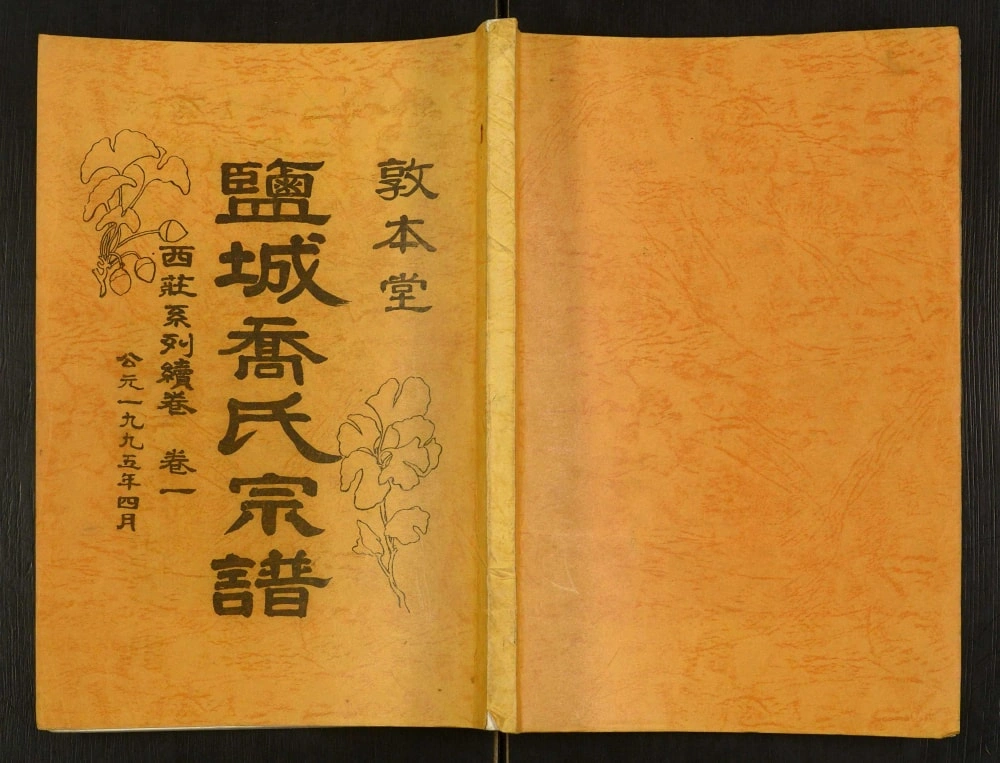 敦本堂
鹽城喬氏宗譜
西莊系列續卷 卷一
公元一九九五年四月